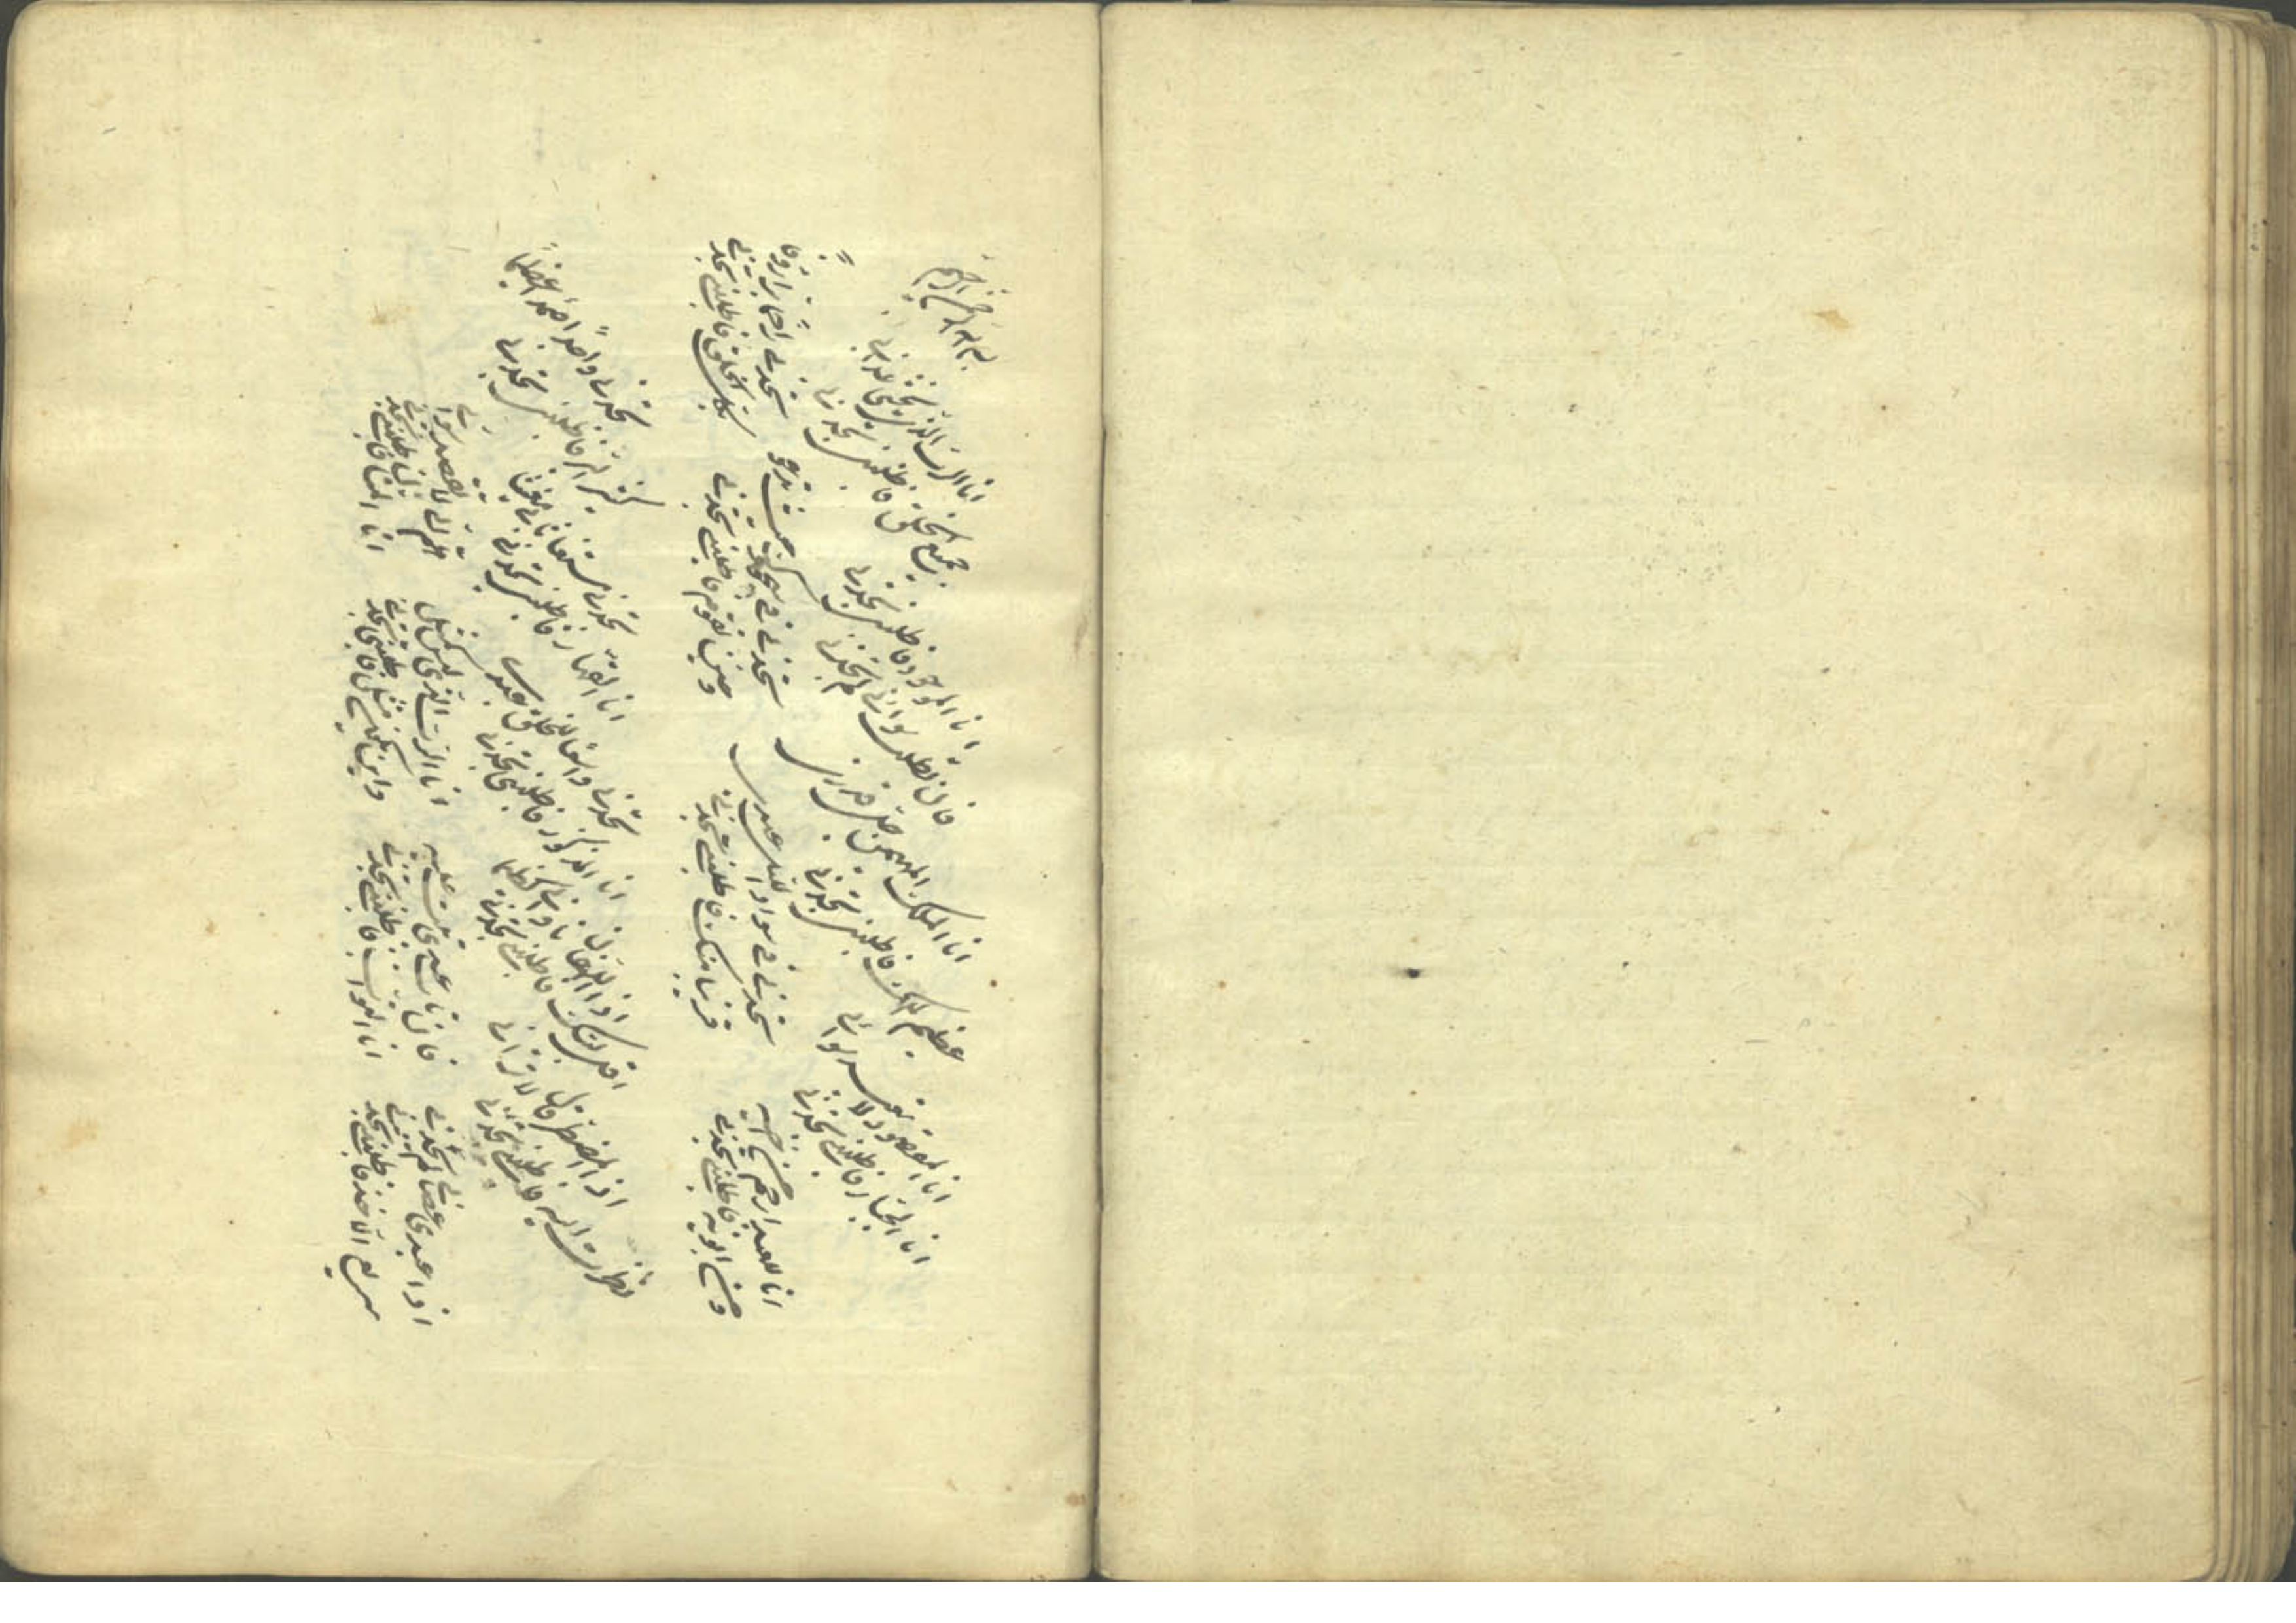 بسم الله الرحمن الرحيم
انا المقصود لا تقصد سوائي
انا الجبار فاطلبني تجدني
انا الملك المهيمن جل قدري
عظيم الملك فاطلبني تجدني
انا الموجود فاطلبني تجدني
فان تطلب سوائي لم تجدني
انا الرب الذي يخشى عذابي
جميع الخلق فاطلبني تجدني
انا للعبد ارحم من اخيه
ومن ابويه فاطلبني تجدني
تجدني في سواد الليل عبدي
قريبا منك فاطلبني تجدني
تجدني في سجودك حيث تدعو
وحين تقوم فاطلبني تجدني
تجدني راحما برا رؤفا
بكل الخلق فاطلبني تجدني
اذا المضطر قال الا تراني
نظرت اليه فاطلبني تجدني
اذا اللهفان ناداني كظيما
اقل لبيك فاطلبني تجدني
تجدني واسعا للخلق عبدي
انا المذكور فاطلبني تجدني
تجدني مستغاثا بي مغيثا
انا القهار فاطلبني تجدني
تجدني واحدا صمدا عظيما
كثير البر فاطلبني تجدني
اذا عبدي عصاني لم تجدني
سريع الاخذ فاطلبني تجدني
فان تاب عبدي تبت عليه
انا التواب فاطلبني تجدني
انا الرب الذي ليس كمثلي
واين مثلي فاطلبني تجدني
هلم الي لا تقصد سوائي
انا المنان فاطلبني تجدني